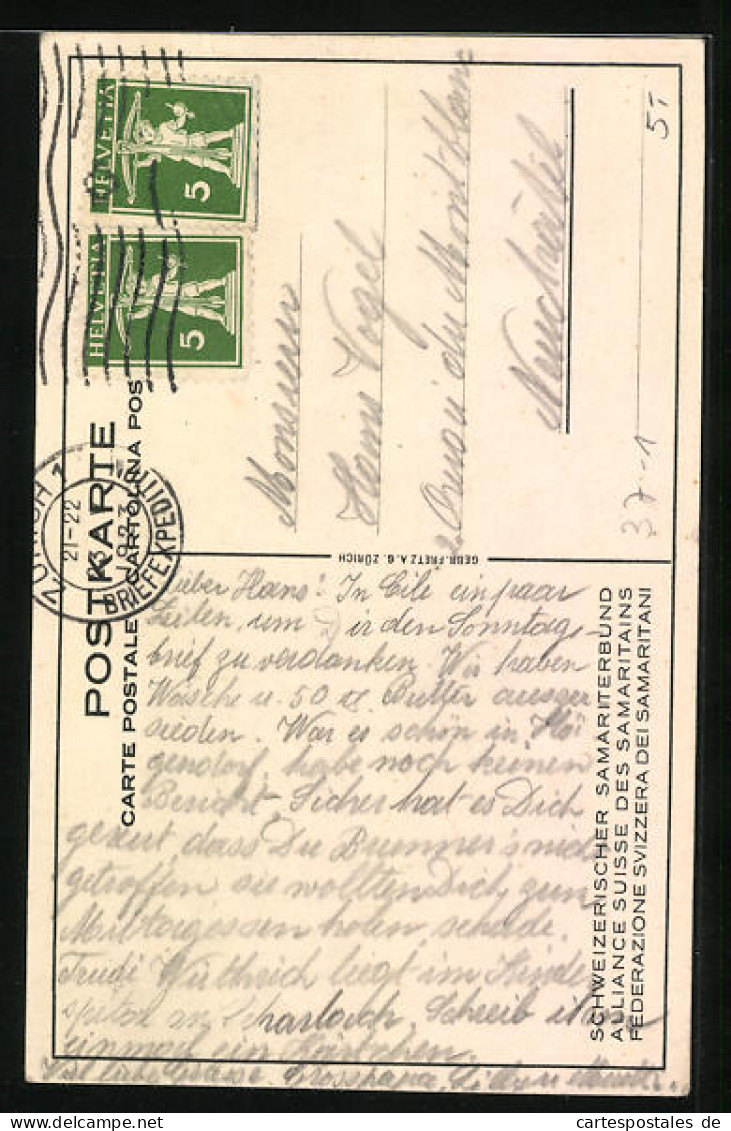 HELVETIA
5
HELVETIA
5
ZÜRICH 1
21-22
1923
BRIEFEXPEDITION
POSTKARTE
CARTE POSTALE CARTOLINA POS
5-
37-1
Monsieur
Hans Vogel
Quai du Mont Blanc
Neuchâtel
GEBR. FRETZ A.G. ZÜRICH
SCHWEIZERISCHER SAMARITERBUND
ALLIANCE SUISSE DES SAMARITAINS
FEDERAZIONE SVIZZERA DEI SAMARITANI
Lieber Hans! In Eile ein paar
Zeilen, um Dir den Sonntag-
brief zu verdanken. Wir haben
Wäsche u. 50 Butter ausge
sieden. War es schön in
gendorf, habe noch keinen
Bericht. Sicher hat es Dich
gereut dass Du Brunner's nicht
getroffen sie wollten Dich zum
Mittagessen holen schade.
Trudi Wüthrich liegt im Kinder
spital an Scharlach. Schreib ihm
einmal ein Kärtchen.
Grüsse. Grosspapa,
cartespostales de delcampe.net